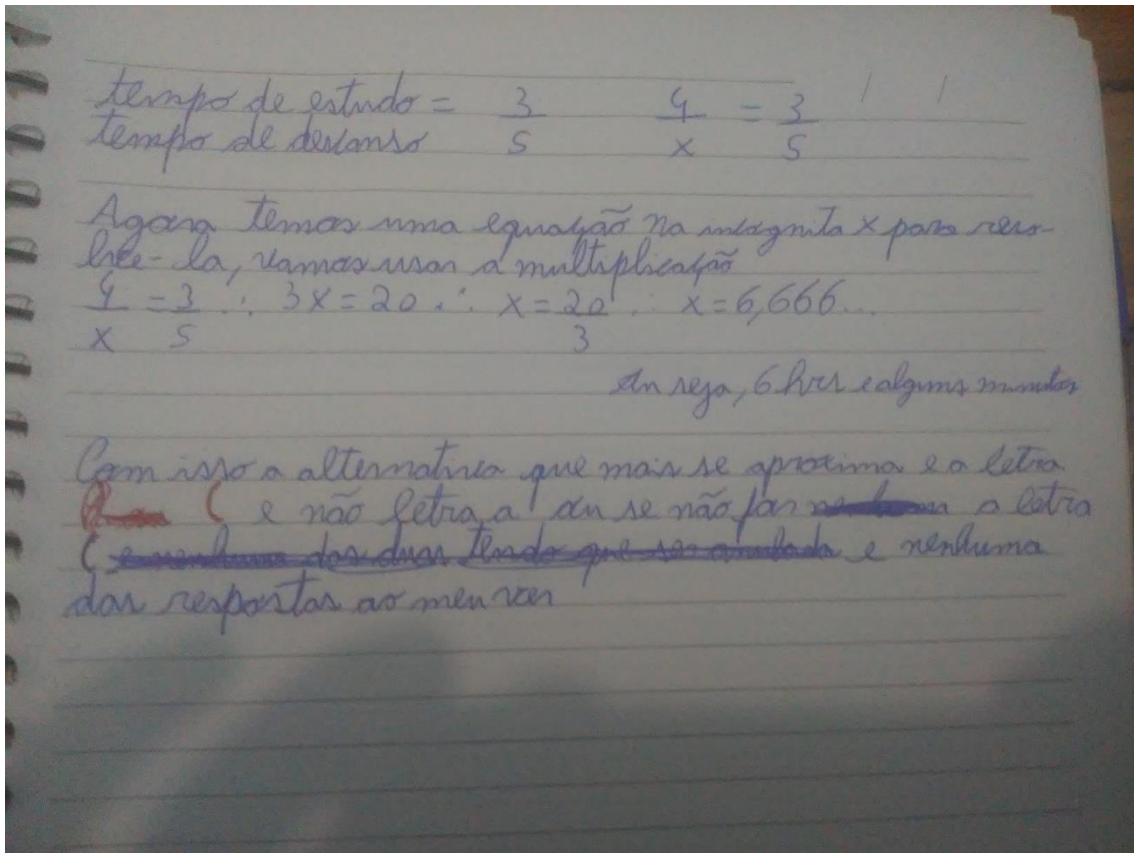 tempo de estudo = 3/5 4/x = 3/5
tempo de descanso
Agora temos uma equação na incógnita x para reso-
lve-la, vamos usar a multiplicação
4/x = 3/5 ∴ 3x = 20 ∴ x = 20/3 ∴ x = 6,666...
ou seja, 6 hrs e alguns minutos
Com isso a alternativa que mais se aproxima e a letra
C e não letra a ou se não for a letra
C e nenhuma
das respostas ao meu ver